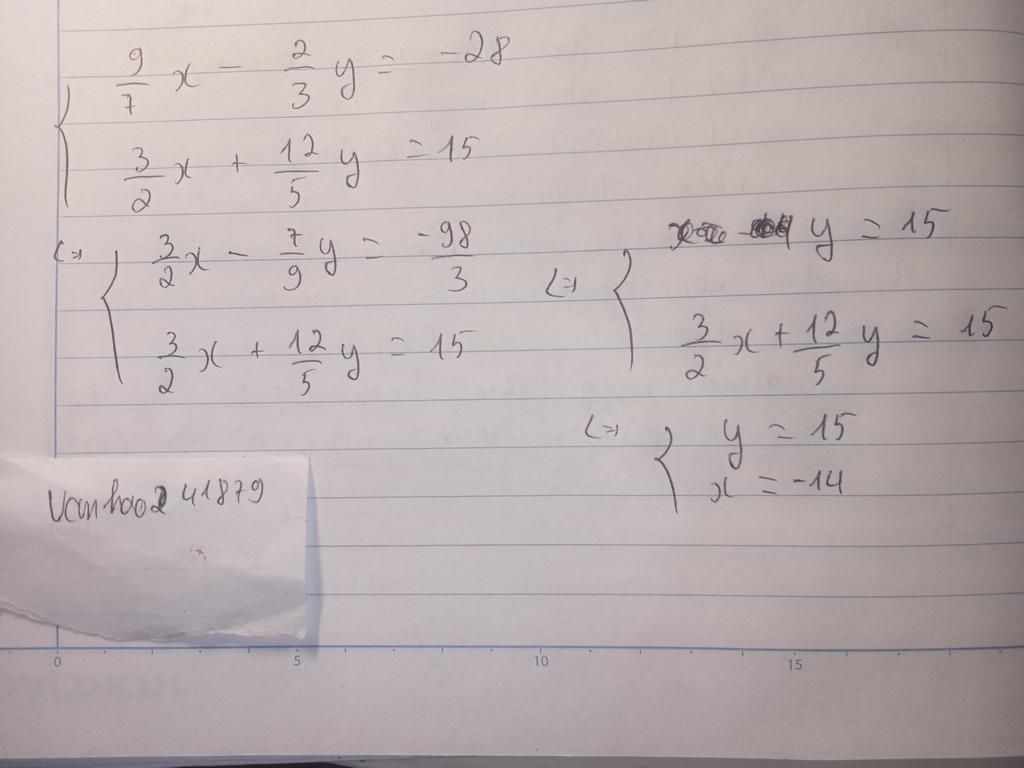 9/7 x - 2/3 y = -28
3/2 x + 12/5 y = 15
<=> 3/2 x - 7/9 y = -98/3
3/2 x + 12/5 y = 15
<=> y = 15
3/2 x + 12/5 y = 15
<=> y = 15
x = -14
Vanhoo2 41879
0 5 10 15